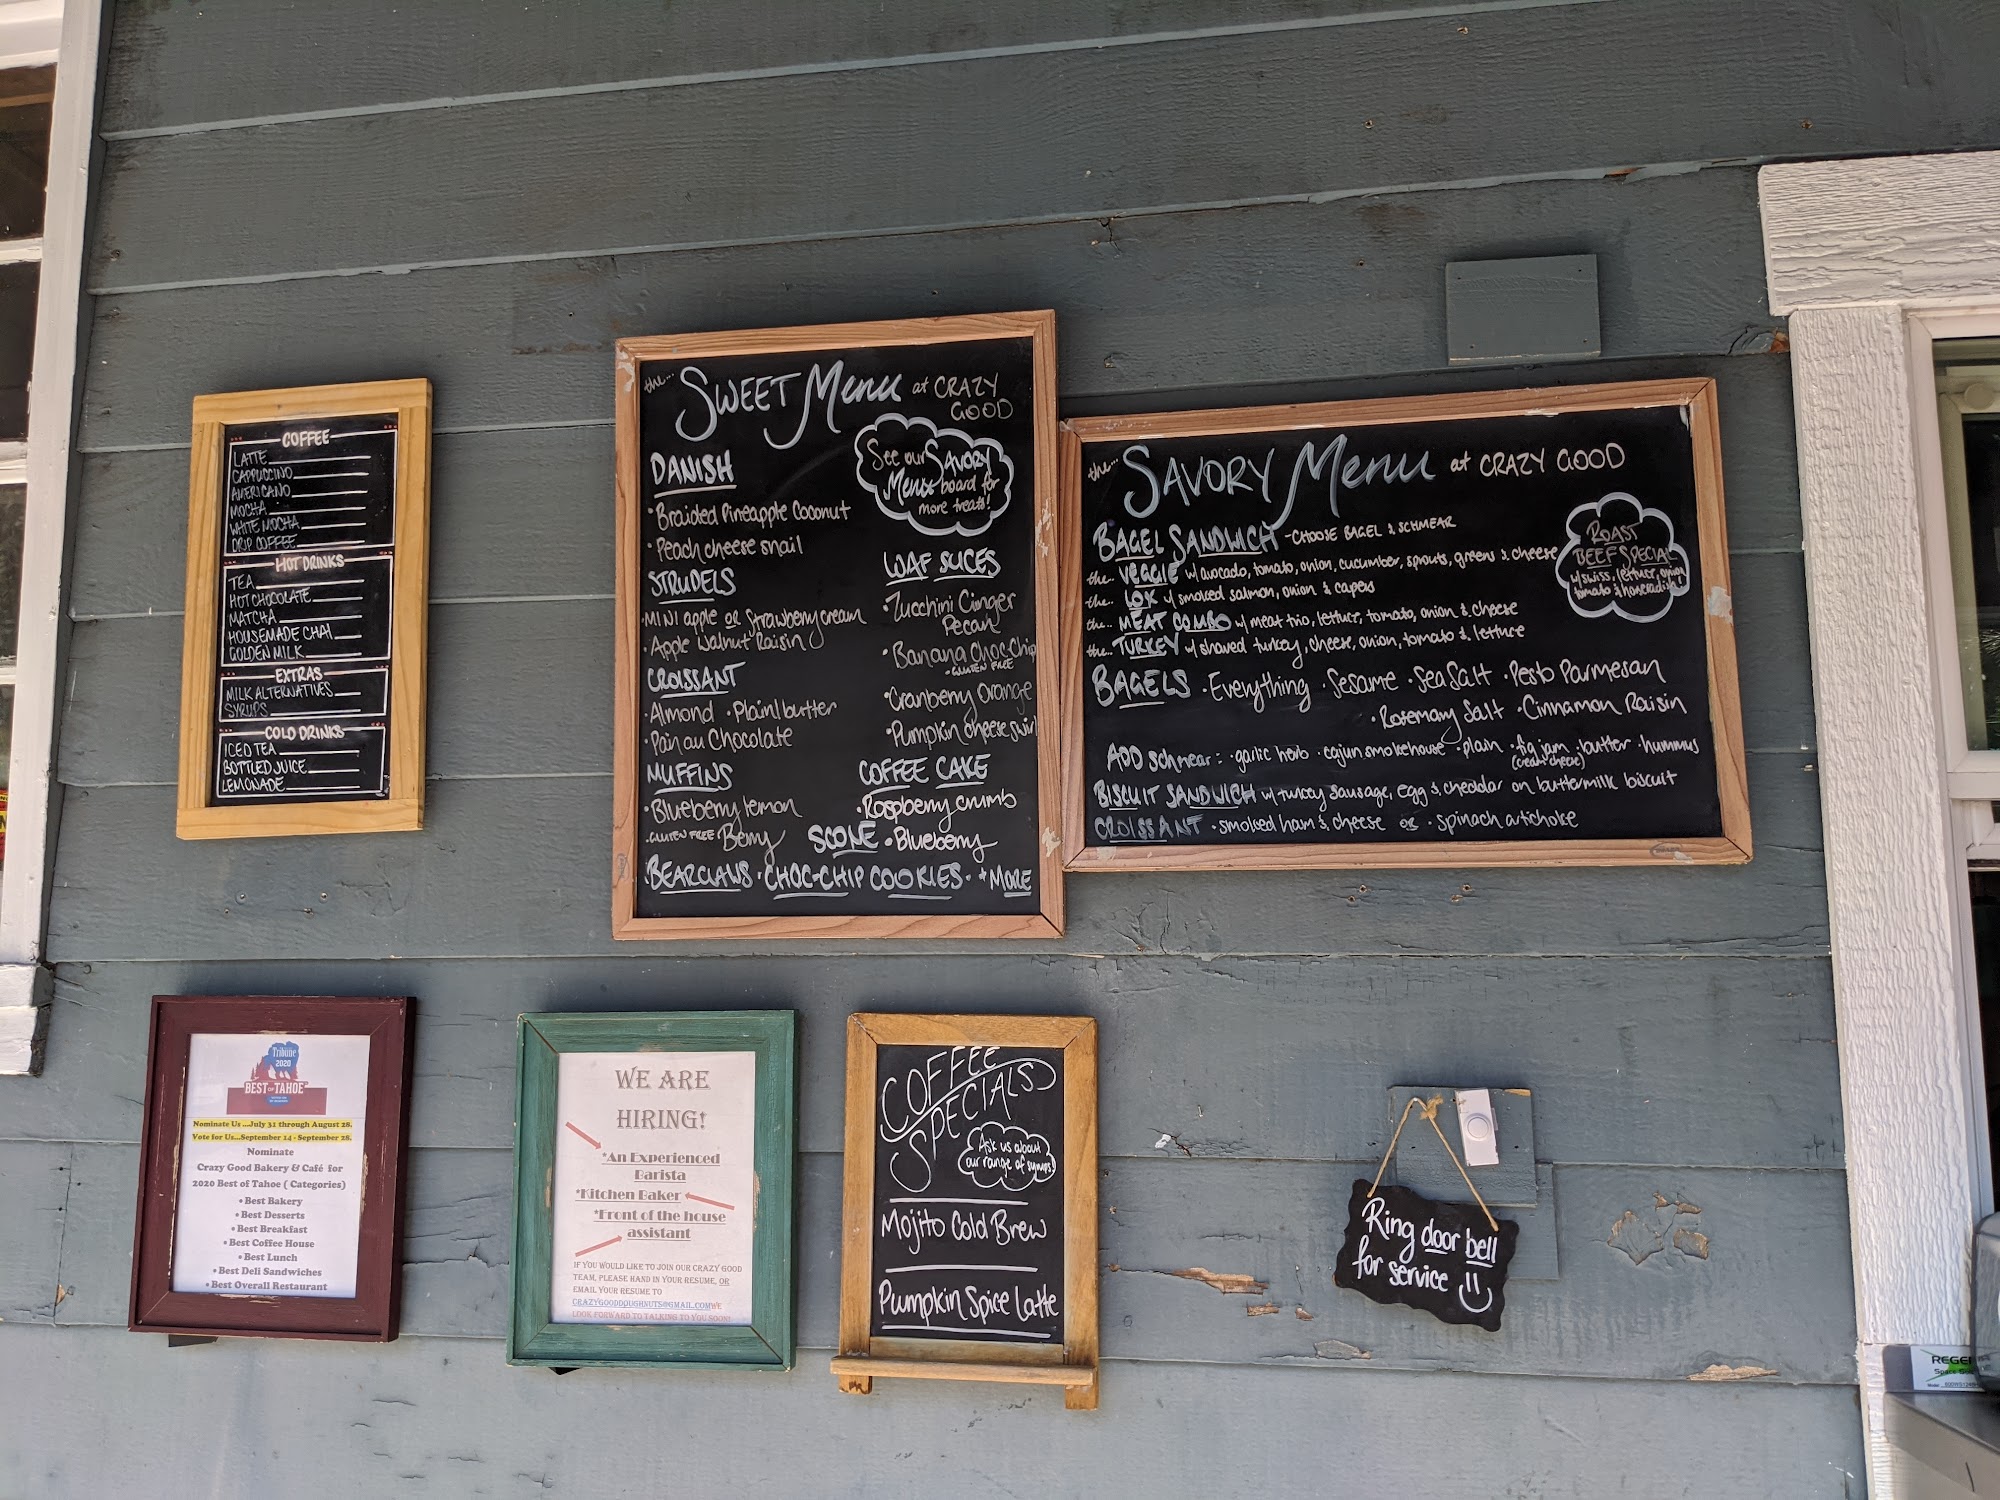 COFFEE
LATTE
CAPPUCCINO
AMERICANO
MOCHA
WHITE MOCHA
DRIP COFFEE
HOT DRINKS
TEA
HOT CHOCOLATE
MATCHA
HOUSEMADE CHAI
GOLDEN MILK
EXTRAS
MILK ALTERNATIVES
SYRUPS
COLD DRINKS
ICED TEA
BOTTLED JUICE
LEMONADE
the... SWEET Menu at CRAZY
GOOD
See our SAVORY
Menu board for
more treats!
DANISH
• Braided Pineapple Coconut
• Peach cheese snail
STRUDELS
• MINI apple or Strawberry cream
• Apple Walnut Raisin
CROISSANT
• Almond • Plain/butter
• Pain au Chocolate
MUFFINS
• Blueberry lemon
• GLUTEN FREE • Berry
LOAF SLICES
• Zucchini Ginger
Pecan
• Banana Choc-Chip
- GLUTEN FREE
• Cranberry Orange
• Pumpkin cheese swirl
COFFEE CAKE
• Raspberry crumb
SCONE • Blueberry
BEARCLAWS • CHOC-CHIP COOKIES • + MORE
the... SAVORY Menu at CRAZY GOOD
BAGEL SANDWICH - CHOOSE BAGEL & SCHMEAR
the.. VEGGIE w/ avocado, tomato, onion, cucumber, sprouts, greens & cheese
the.. LOX w/ smoked salmon, onion & capers
the.. MEAT COMBO w/ meat trio, lettuce, tomato, onion & cheese
the.. TURKEY w/ shaved turkey, cheese, onion, tomato & lettuce
ROAST
BEEF SPECIAL
w/ swiss, lettuce, onion
tomato & horseradish!
BAGELS • Everything • Sesame • Sea Salt • Pesto Parmesan
• Rosemary Salt • Cinnamon Raisin
ADD schmear: • garlic herb • cajun smokehouse • plain • fig jam • butter • hummus
(cream cheese)
BISCUIT SANDWICH w/ turkey sausage, egg & cheddar on buttermilk biscuit
CROISSANT • smoked ham & cheese or • spinach artichoke
Tribune
2020
BEST OF TAHOE
Nominate Us ...July 31 through August 28.
Vote for Us...September 14 - September 28.
Nominate
Crazy Good Bakery & Café for
2020 Best of Tahoe ( Categories)
• Best Bakery
• Best Desserts
• Best Breakfast
• Best Coffee House
• Best Lunch
• Best Deli Sandwiches
• Best Overall Restaurant
WE ARE
HIRING!
*An Experienced
Barista
*Kitchen Baker
*Front of the house
assistant
IF YOU WOULD LIKE TO JOIN OUR CRAZY GOOD
TEAM, PLEASE HAND IN YOUR RESUME, OR
EMAIL YOUR RESUME TO
CRAZYGOODDOUGHNUTS@GMAIL.COMWE
LOOK FORWARD TO TALKING TO YOU SOON!
COFFEE
SPECIALS
Ask us about
our range of syrups!
Mojito Cold Brew
Pumpkin Spice Latte
Ring door bell
for service